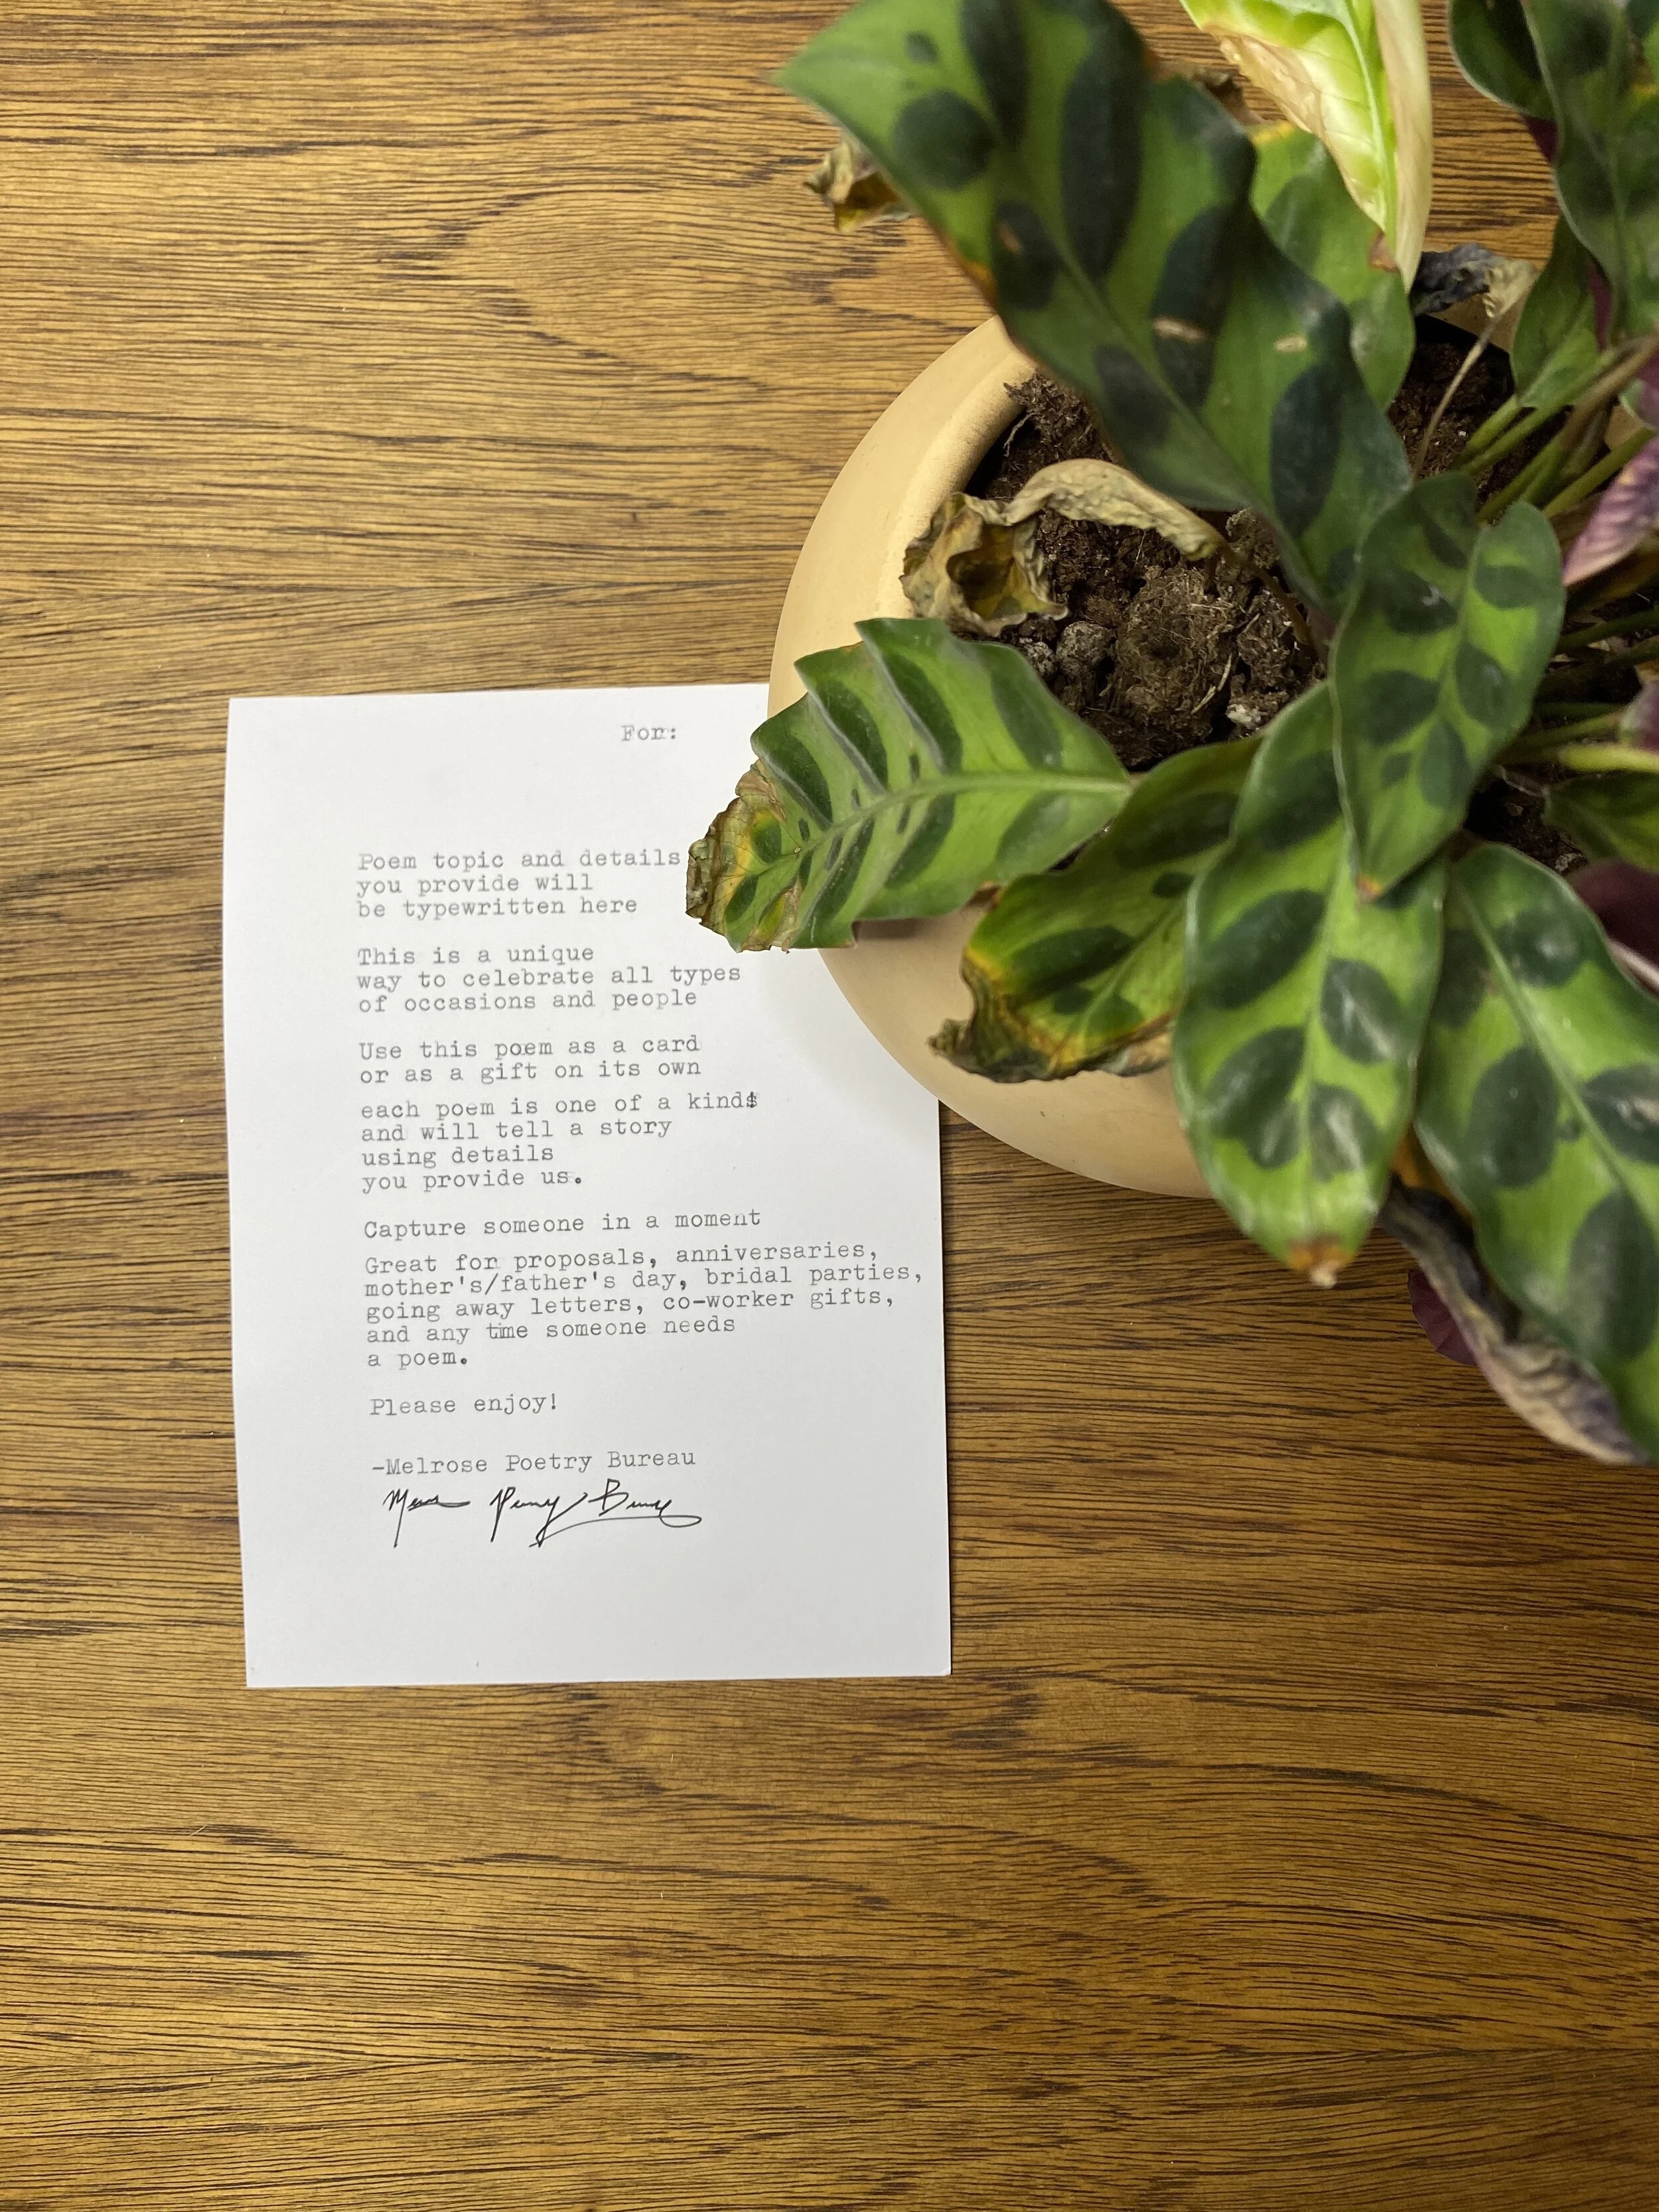 For:
Poem topic and details
you provide will
be typewritten here
This is a unique
way to celebrate all types
of occasions and people
Use this poem as a card
or as a gift on its own
each poem is one of a kind$
and will tell a story
using details
you provide us.
Capture someone in a moment
Great for proposals, anniversaries,
mother's/father's day, bridal parties,
going away letters, co-worker gifts,
and any time someone needs
a poem.
Please enjoy!
-Melrose Poetry Bureau